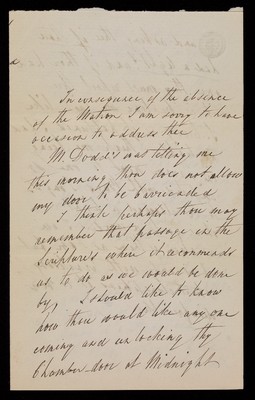 In consequence of the absence
of the Matron I am sorry to have
occasion to address thee
M. Dodd's was telling me
this morning thou does not allow
my door to be barricaded
I think perhaps thou may
remember that passage in the
Scriptures where it recommends
us to do as we would be done
by, I should like to know
how thou would like any one
coming and unlocking thy
Chamber-door at Midnight